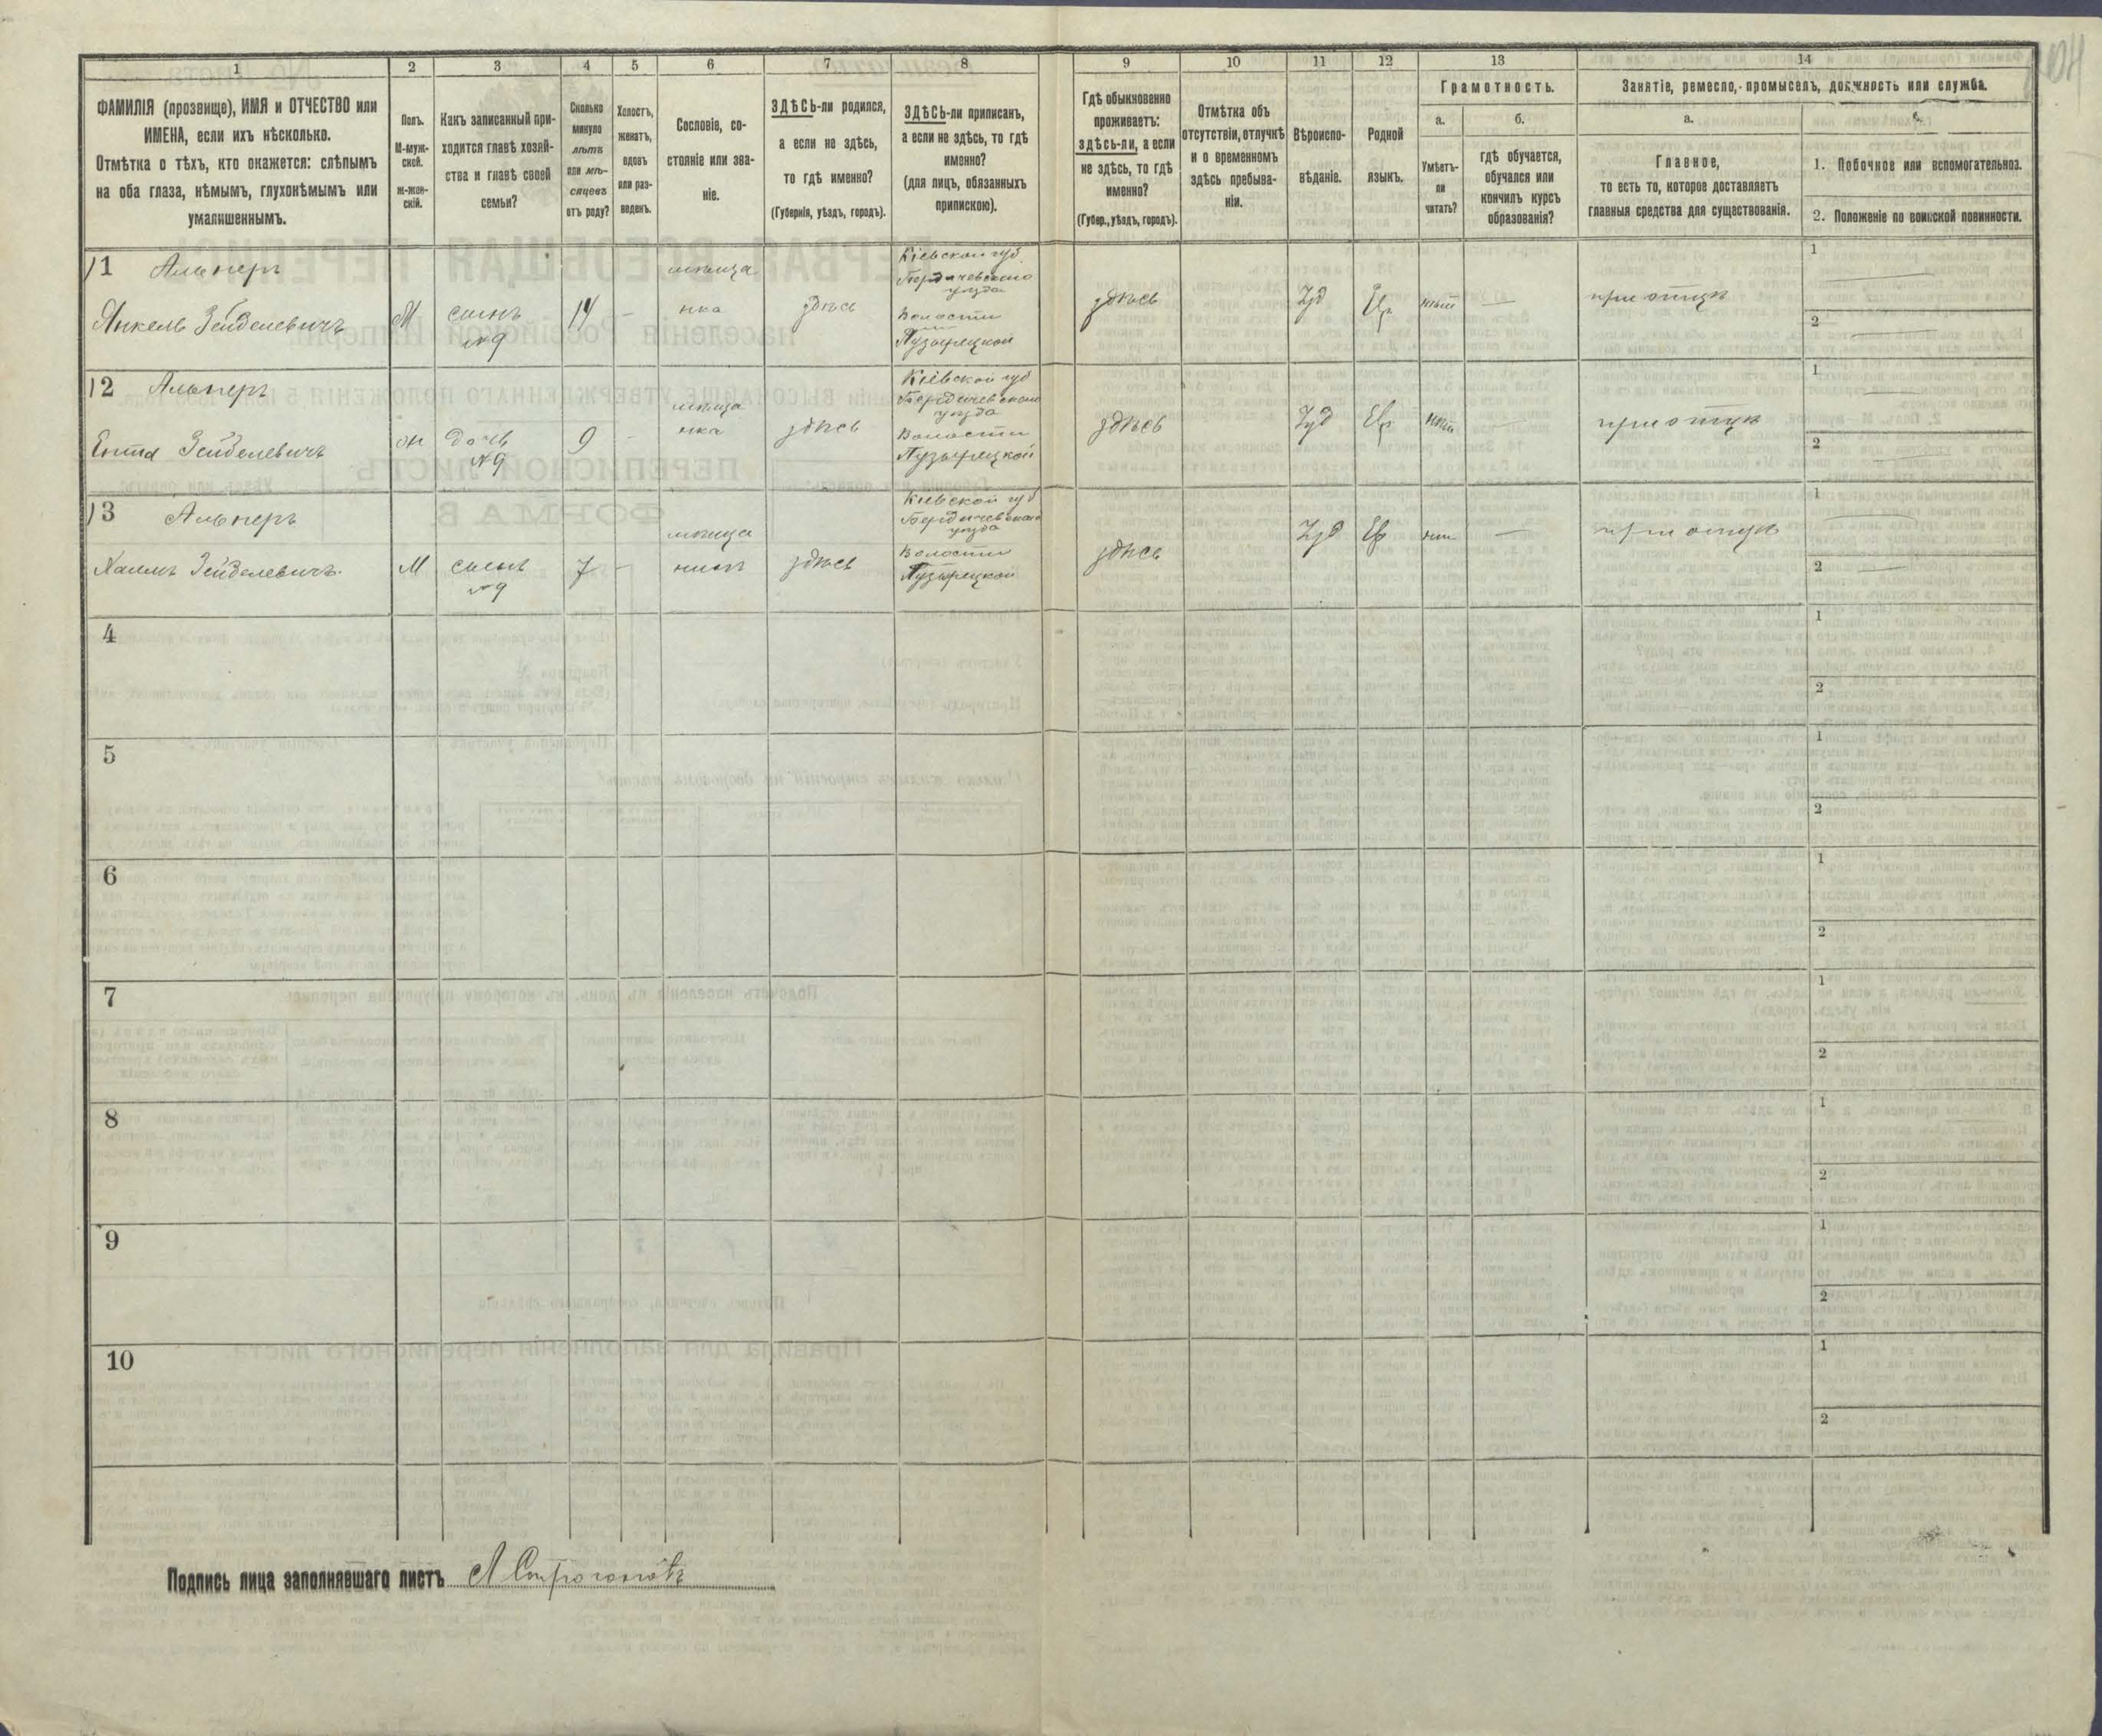 104
1 2 3 4 5 6 7 8 9 10 11 12 13 14
ФАМИЛІЯ (прозвище), ИМЯ и ОТЧЕСТВО или
ИМЕНА, если ихъ нѣсколько.
Отмѣтка о тѣхъ, кто окажется: слѣпымъ
на оба глаза, нѣмымъ, глухонѣмымъ или
умалишеннымъ.
Полъ.
М-муж-
ской.
Ж-жен-
скій.
Какъ записанный при-
ходится главѣ хозяй-
ства и главѣ своей
семьи?
Сколько
минуло
лѣтъ
или мѣ-
сяцевъ
отъ роду?
Холостъ,
женатъ,
вдовъ
или раз-
веденъ.
Сословіе, со-
стояніе или зва-
ніе.
ЗДѢСЬ-ли родился,
а если не здѣсь,
то гдѣ именно?
(Губернія, уѣздъ, городъ).
ЗДѢСЬ-ли приписанъ,
а если не здѣсь, то гдѣ
именно?
(для лицъ, обязанныхъ
припискою).
Гдѣ обыкновенно
проживаетъ:
здѣсь-ли, а если
не здѣсь, то гдѣ
именно?
(Губер., уѣздъ, городъ).
Отмѣтка объ
отсутствіи, отлучкѣ
и о временномъ
здѣсь пребыва-
ніи.
Вѣроиспо-
вѣданіе.
Родной
языкъ.
Грамотность.
а.
Умѣетъ-
ли
читать?
б.
гдѣ обучается,
обучался или
кончилъ курсъ
образованія?
Занятіе, ремесло, промыселъ, должность или служба.
а.
Главное,
то есть то, которое доставляетъ
главныя средства для существованія.
1. Побочное или вспомогательное.
2. Положеніе по воинской повинности.
11 Альперъ
Янкель Зейделевичъ
М
сынъ
№9
14
-
мѣща
нка
здѣсь
Кіевской губ.
Бердичевскаго
уѣзда
Волости
Пузырецкой
здѣсь
Іуд
Евр
нѣт
—
при отцѣ
1
2
12 Альперъ
Ента Зейделевичъ
ж
дочь
№9
9
-
мѣща
нка
здѣсь
Кіевской губ
Бердичевскаго
уѣзда
Волости
Пузырецкой
здѣсь
Іуд
Евр
нѣт
—
при отцѣ
1
2
13 Альперъ
Хаимъ Зейделевичъ.
М
сынъ
№9
7
-
мѣща
нинъ
здѣсь
Кіевской губ
Бердичевскаго
уѣзда
Волости
Пузырецкой
здѣсь
Іуд
Евр
нѣт
—
при отцѣ
1
2
4
1
2
5
1
2
6
1
2
7
1
2
8
1
2
9
1
2
10
1
2
Подпись лица заполнявшаго листъ